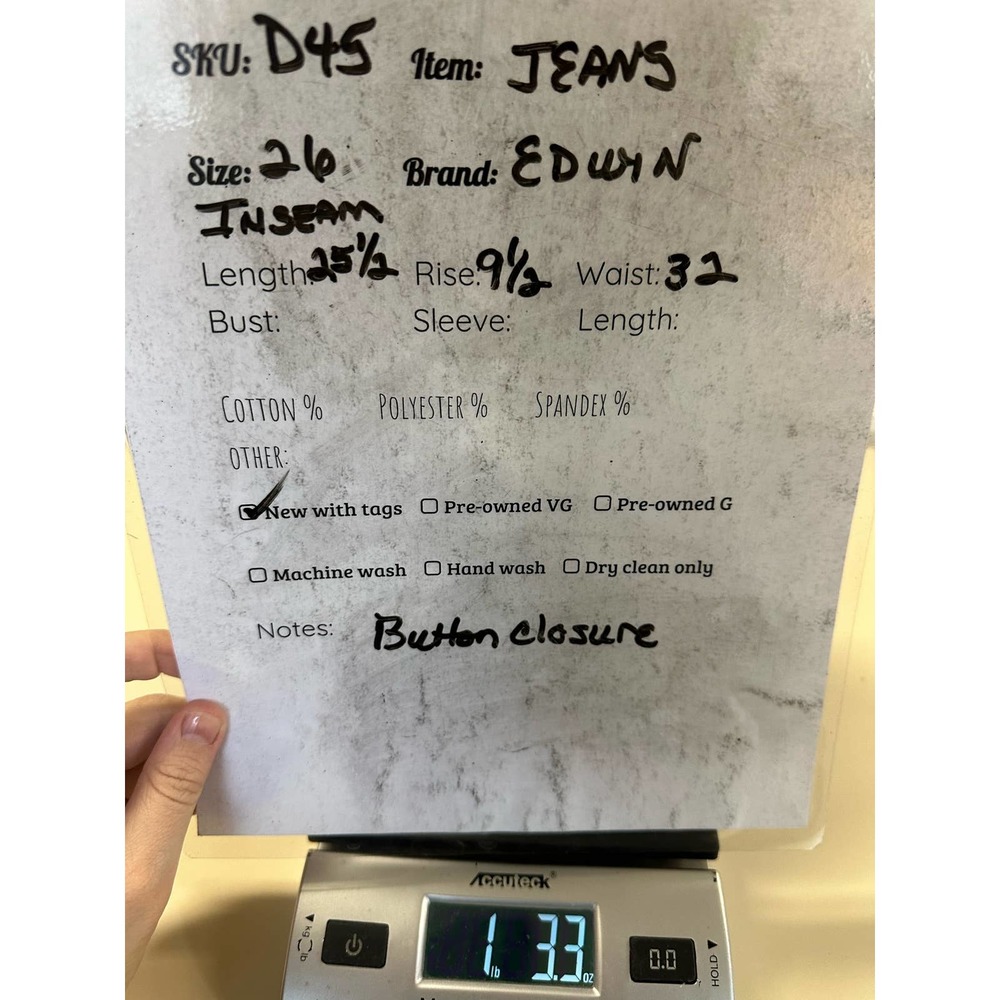 SKU: D45 Item: JEANS
Size: 26 Brand: EDWIN
INSEAM
Length: 25 1/2 Rise: 9 1/2 Waist: 32
Bust: Sleeve: Length:
COTTON % POLYESTER % SPANDEX %
OTHER:
New with tags Pre-owned VG Pre-owned G
Machine wash Hand wash Dry clean only
Notes: Button closure
Accuteck®
kg lb 1 lb 3.3 oz 0.0 HOLD